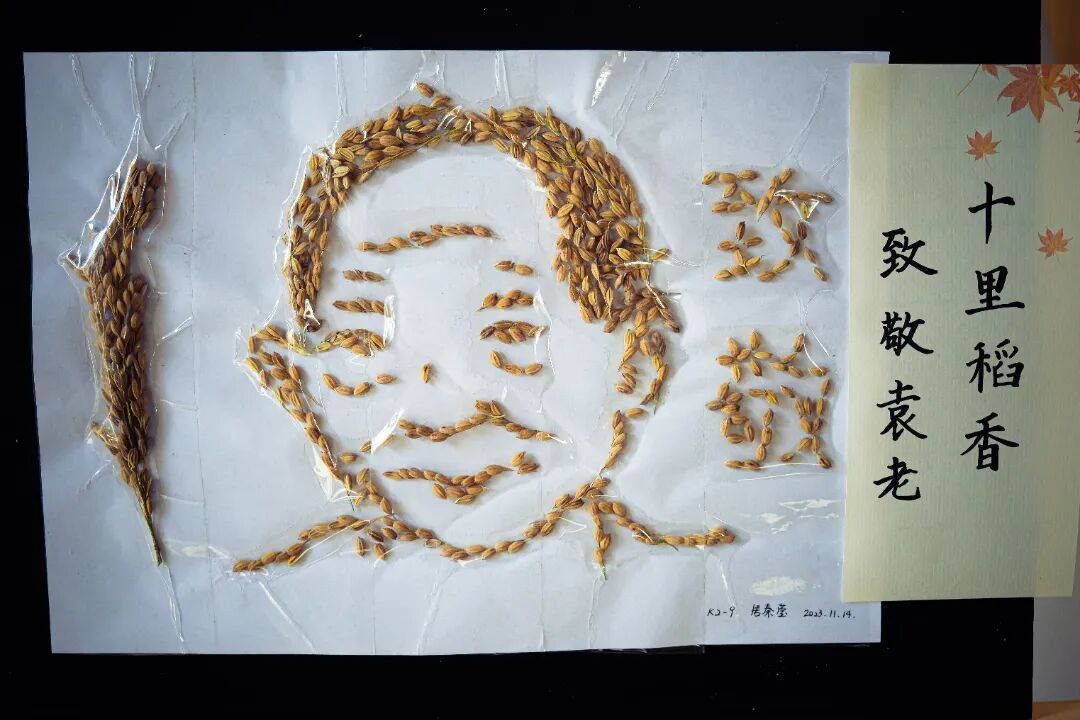 致敬
十里稻香
致敬袁老
K2-9 2023.11.14.